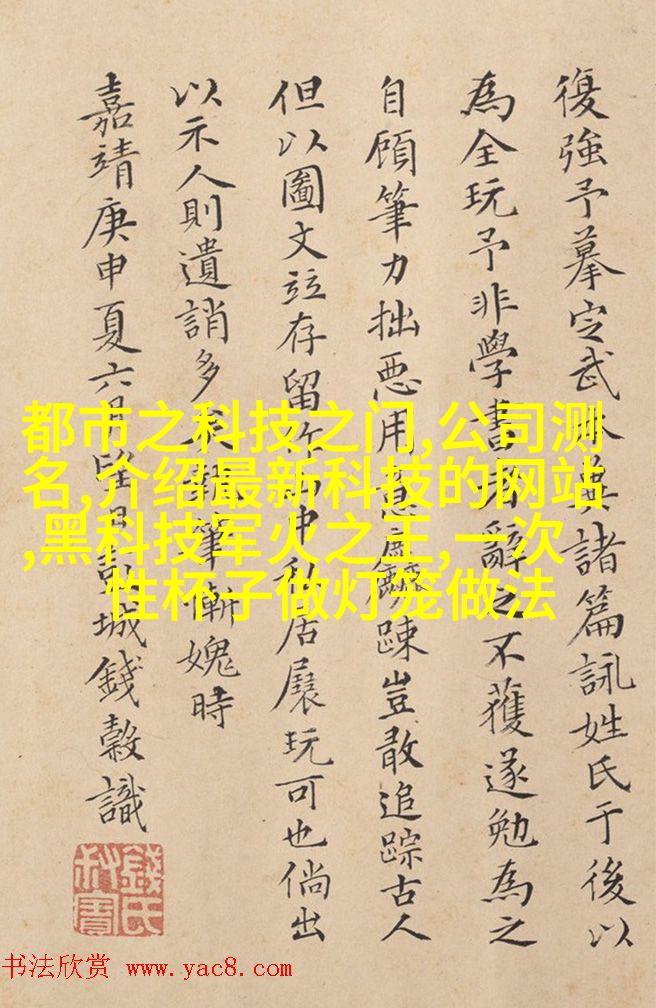 復強予摹定武諸篇詠姓氏于後以
為全玩予非學書者辭之不獲遂勉為之
自顧筆力拙惡用意麤踈豈敢追踪古人
但以圖文竝存留作山中私居展玩可也倘出
以示人則遺誚多矣執筆慚媿時
嘉靖庚申夏六月望日彭城錢榖識
錢氏叔寶
都市之科技之门,公司测
名,介绍最新科技的网站
,黑科技军火之王,一次
性杯子做灯笼做法
书法欣赏 www.yac8.com